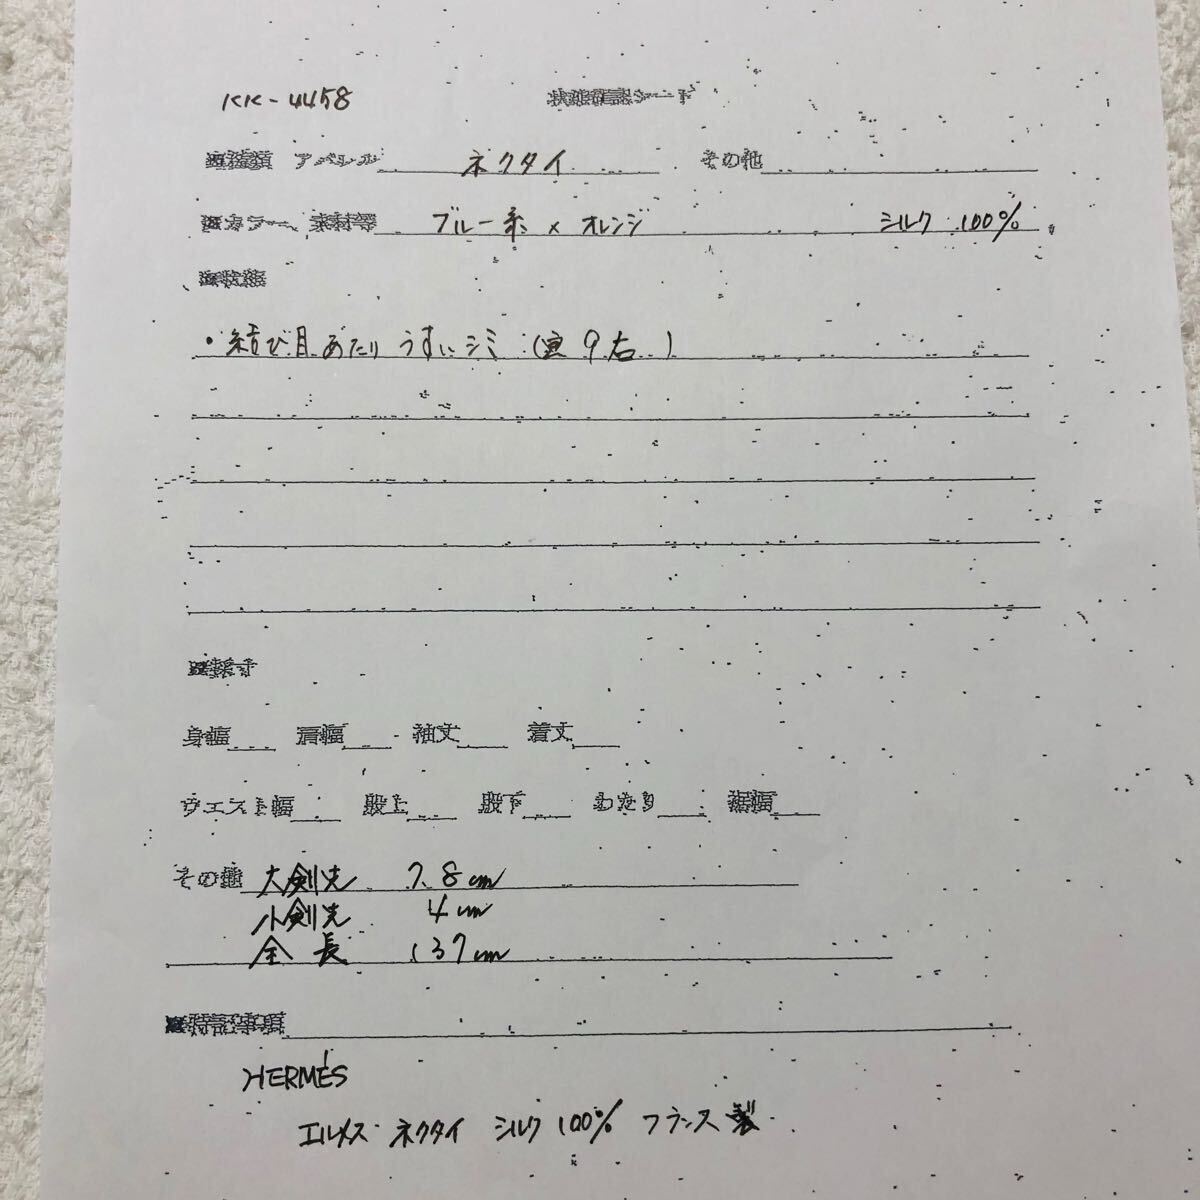 KK-4458 状態確認シート
■種類 アパレル ネクタイ その他
■カラー、素材等 ブルー系 × オレンジ シルク 100%
■状態
・結び目あたり うすいシミ (写 9 右)
■採寸
身幅 肩幅 袖丈 着丈
ウエスト幅 股上 股下 わたり 裾幅
その他 大剣先 7.8cm
小剣先 4cm
全長 137cm
■特記事項
HERMÈS
エルメス ネクタイ シルク 100% フランス製